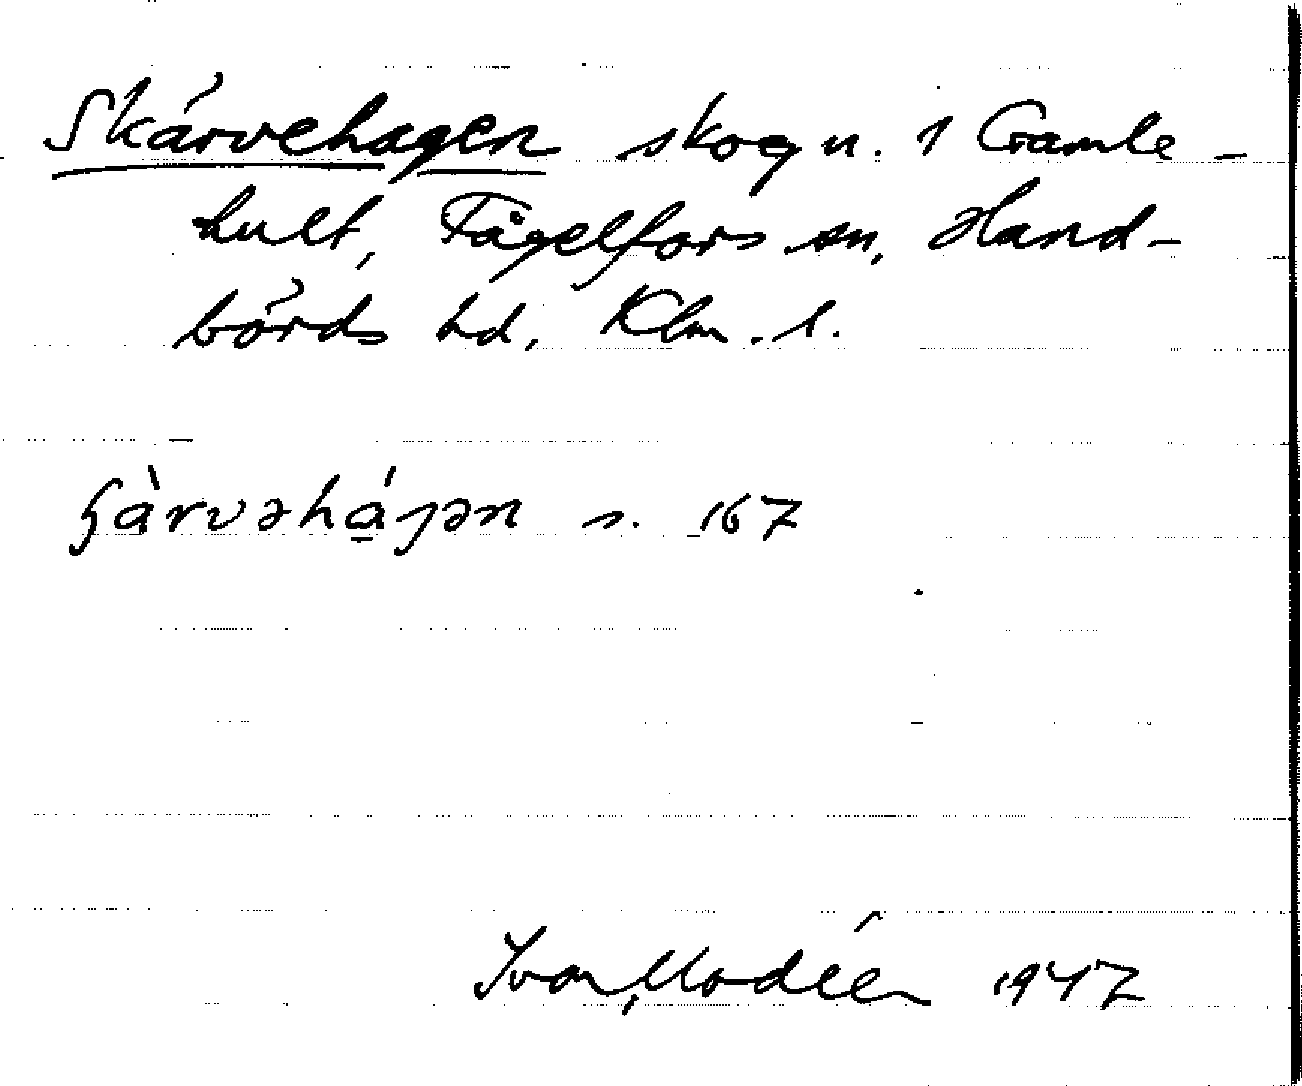 Skärvehagen skog n. 1 Gamle-
hult, Fågelfors sn, Hand-
börds hd, Klm. l.
ɧàrvəhá̱ɡən s. 167
Ivar Modéer 1947